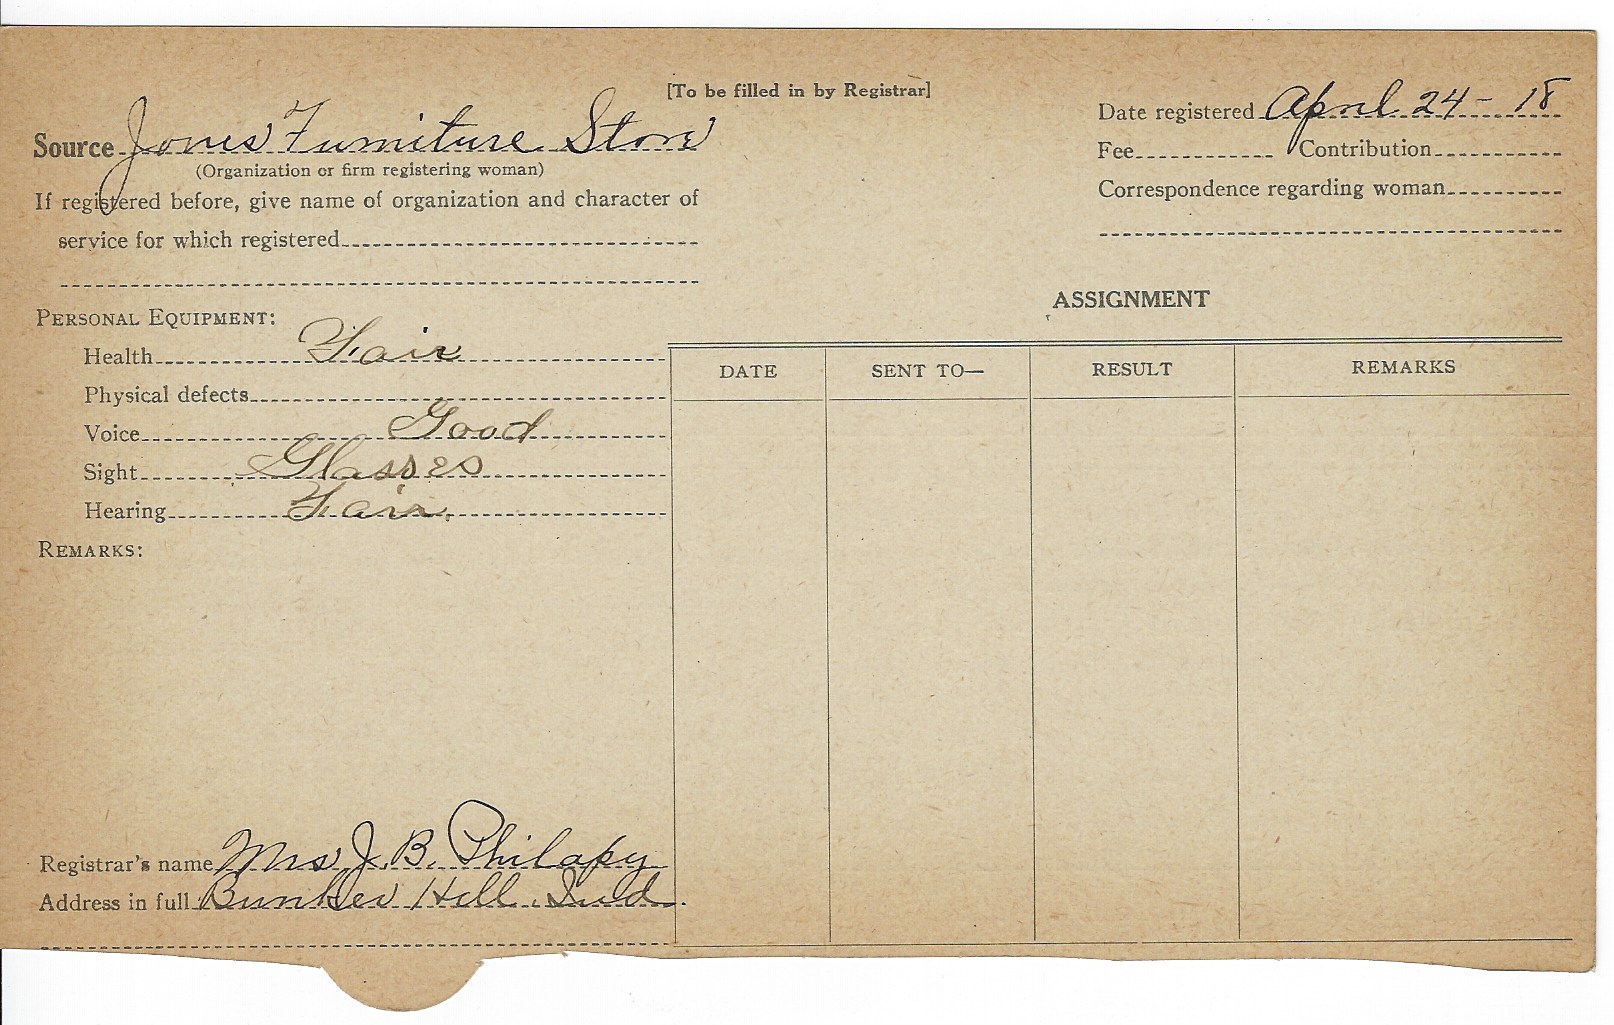 [To be filled in by Registrar]
Source Jones Furniture Store
(Organization or firm registering woman)
If registered before, give name of organization and character of
service for which registered
Date registered April 24 - 18
Fee Contribution
Correspondence regarding woman
PERSONAL EQUIPMENT:
Health Fair
Physical defects
Voice Good
Sight Glasses
Hearing Fair.
REMARKS:
ASSIGNMENT
DATE SENT TO— RESULT REMARKS
Registrar's name Mrs J. B. Philapy
Address in full Bunker Hill. Ind.